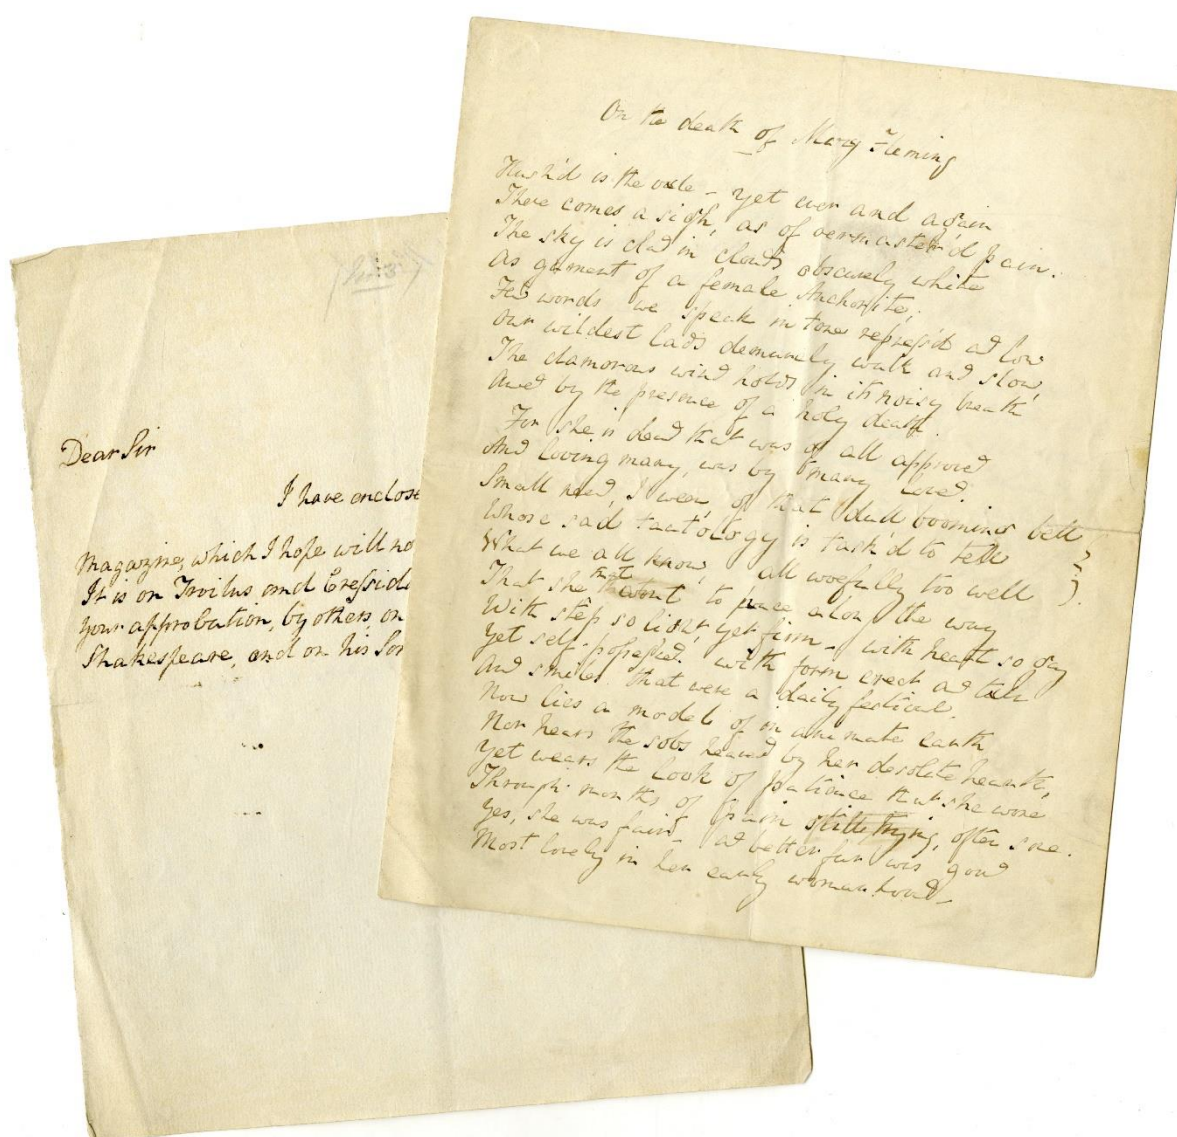 Dear Sir
I have enclose
Magazine, which I hope will no
It is on Troilus and Cressida
your approbation, by others, on
Shakespeare, and on his Son
On the death of Mary Fleming
Hush'd is the vale – yet ever and again
There comes a sigh, as of o'ermaster'd pain.
The sky is clad in clouds obscurely white
As garment of a female Anchorite;
Few words we speak in tones repress'd ad low
Our wildest lads demurely walk and slow,
The clamorous wind holds in its noisy breath
Awed by the presence of a holy death.
For she is dead that was of all approved
And loving many, was by many loved.
Small need, I ween, of that dull booming bell
Whose sad tautology is task'd to tell
What we all know, all woefully too well
That she that wont to pace along the way
With step so light, yet firm – with heart so gay
Yet self-possess'd. with form erect ad tall
And smiles that were a daily festival.
Now lies a model of inanimate earth
Nor hears the sobs heaved by her desolate hearth,
Yet wears the look of patience that she wore
Through months of pain still trying, often sore.
Yes, she was fair – ad better far was good
Most lovely in her early womanhood –